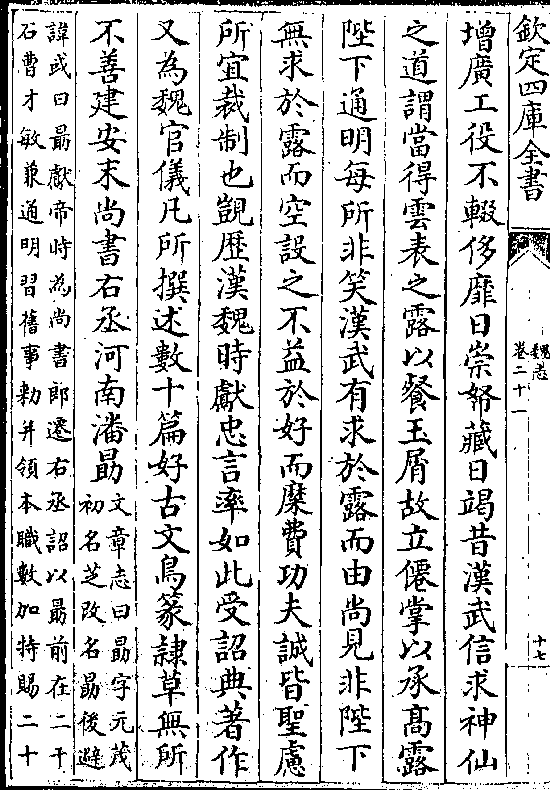 欽定四庫全書
魏志
卷二十一
十七
增廣工役不輟侈靡日崇帑藏日竭昔漢武信求神仙
之道謂當得雲表之露以餐玉屑故立僊掌以承髙露
陛下通明每所非笑漢武有求於露而由尚見非陛下
無求於露而空設之不益於好而糜費功夫誠皆聖慮
所宜裁制也覬歴漢魏時獻忠言率如此受詔典著作
又為魏官儀凡所撰述數十篇好古文鳥篆隷草無所
不善建安末尚書右丞河南潘勗
文章志曰勗字元茂
初名芝改名勗後避
諱或曰勗獻帝時為尚書郎遷右丞詔以勗前在二千
石曹才敏兼通明習舊事勅并領本職數加特賜二十